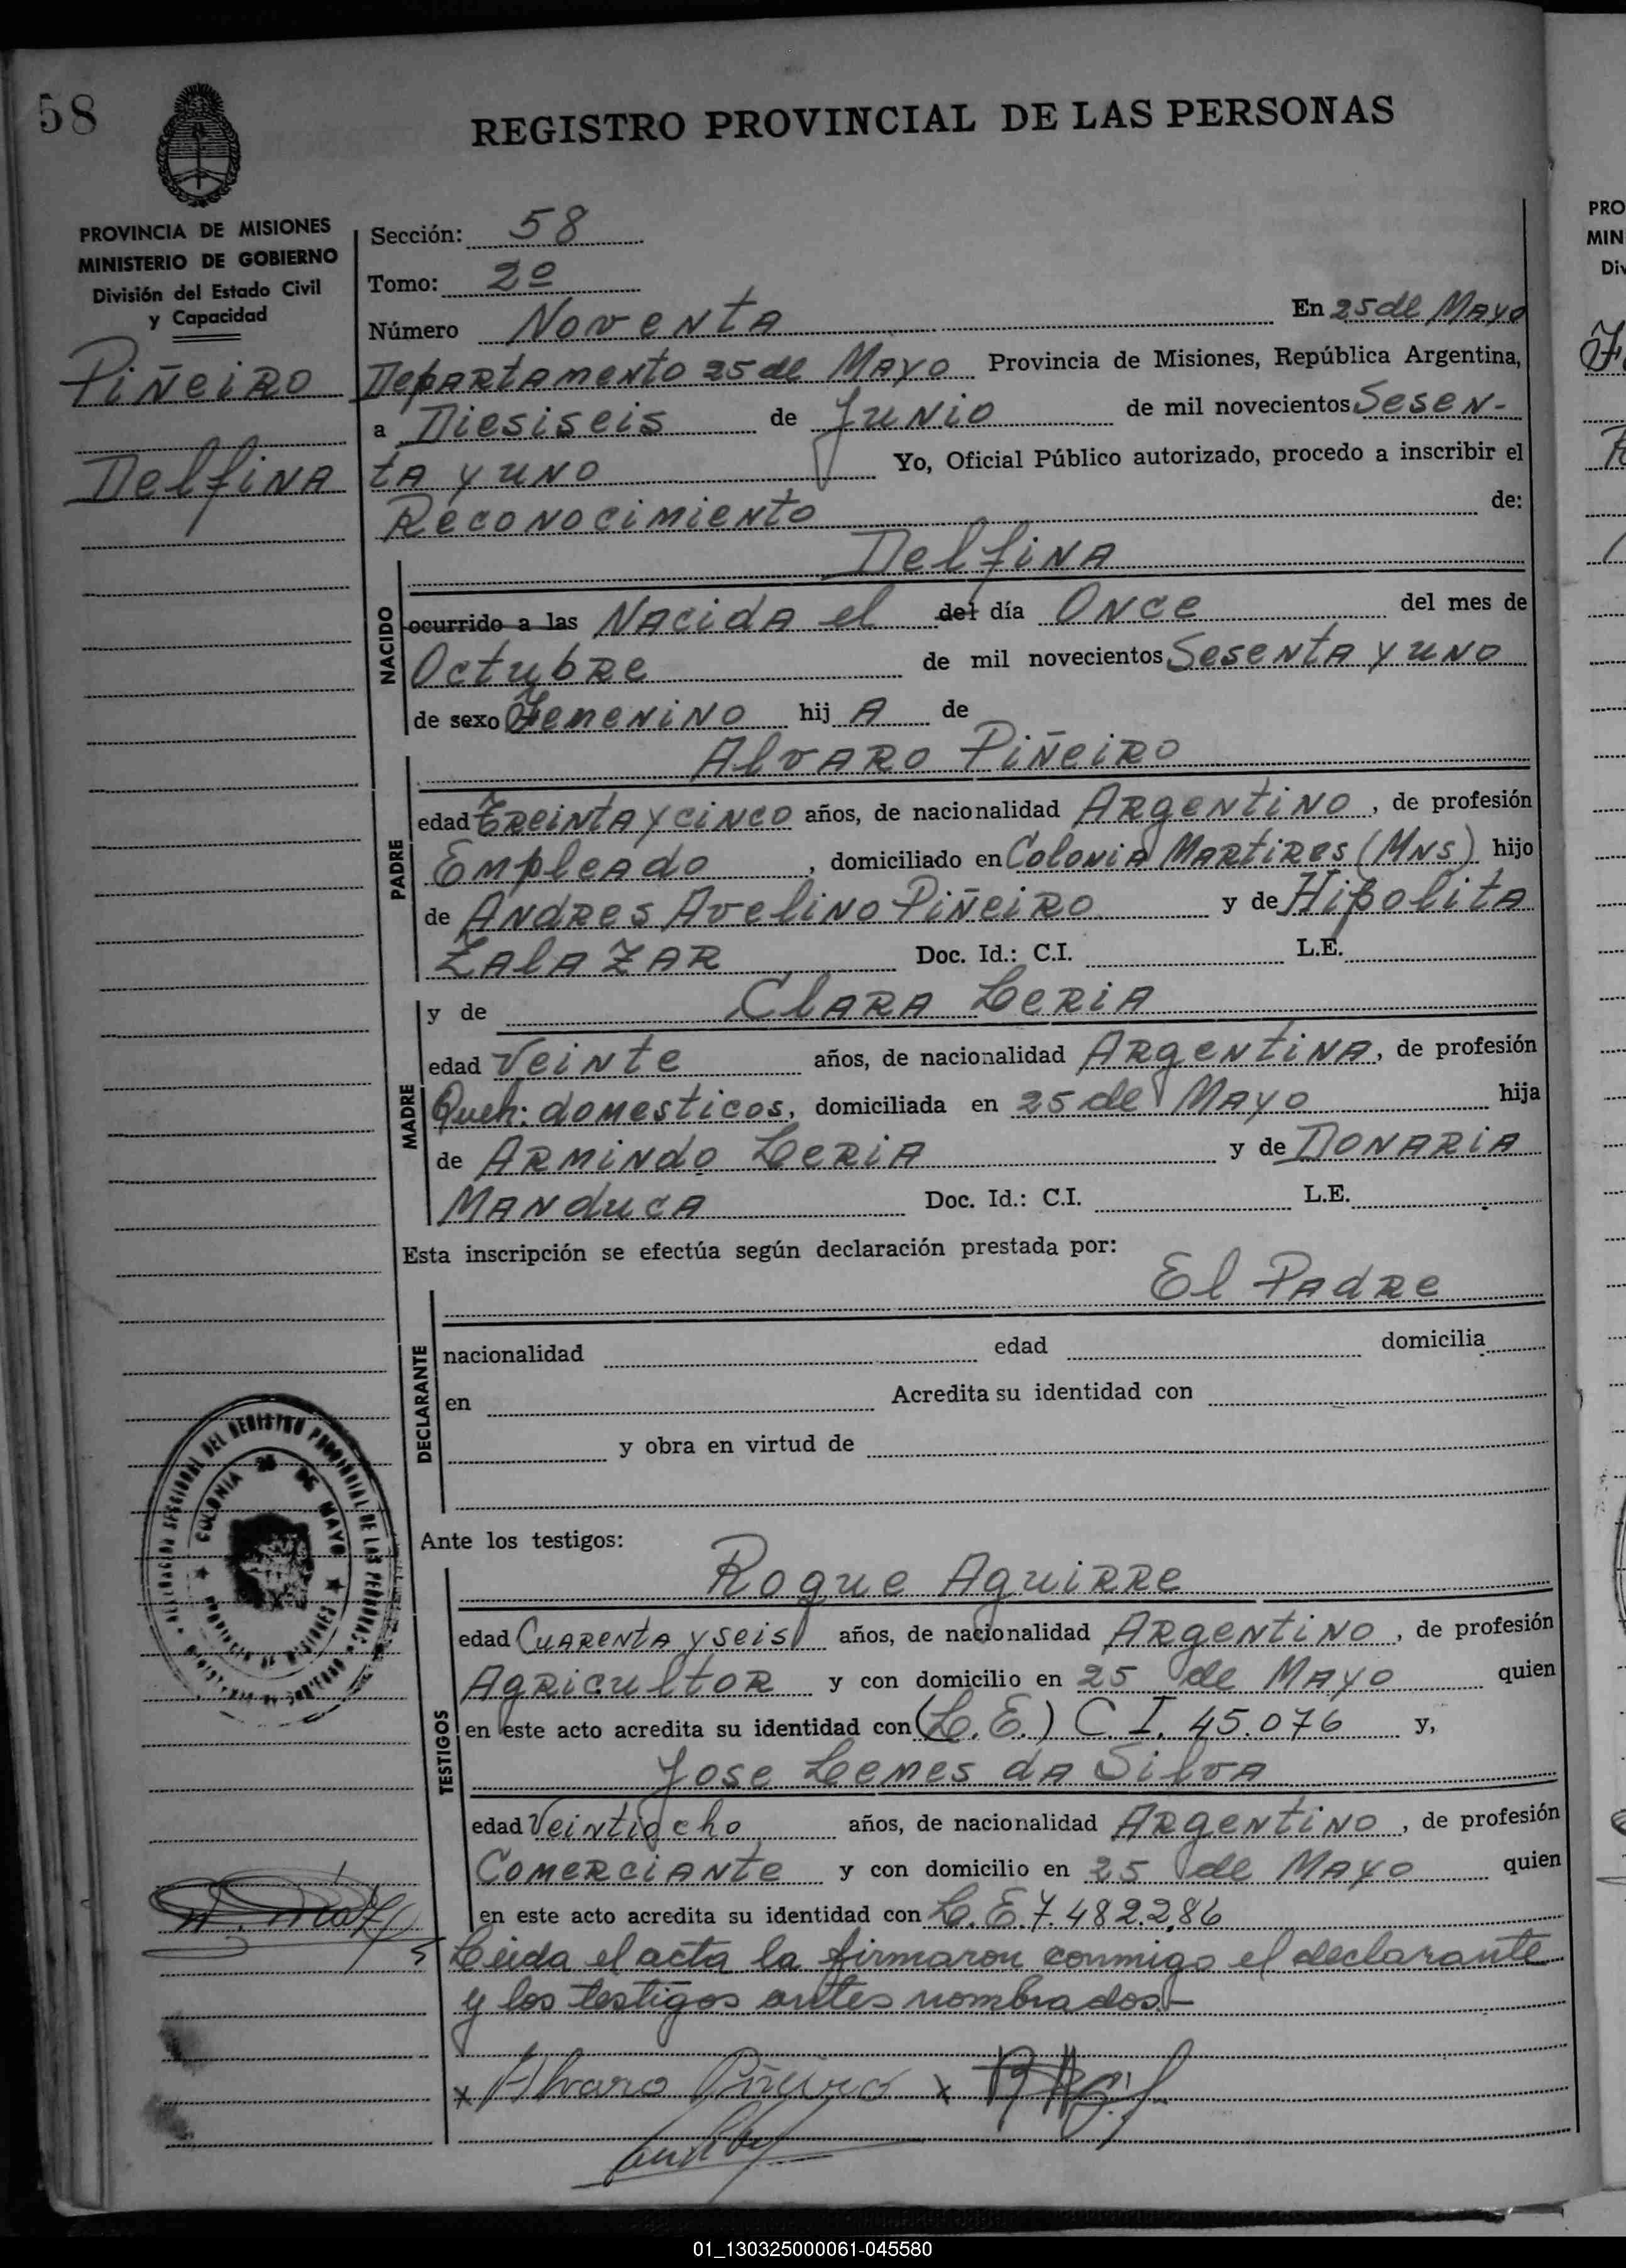 58
REGISTRO PROVINCIAL DE LAS PERSONAS
PROVINCIA DE MISIONES
MINISTERIO DE GOBIERNO
División del Estado Civil
y Capacidad
Piñeiro
Delfina
Sección: 58
Tomo: 2º
Número Noventa En 25 de Mayo
Departamento 25 de Mayo Provincia de Misiones, República Argentina,
a Diesiseis de Junio de mil novecientos Sesen-
ta y uno Yo, Oficial Público autorizado, procedo a inscribir el
Reconocimiento de:
Delfina
NACIDO
ocurrido a las Nacida el del día Once del mes de
Octubre de mil novecientos Sesenta y uno
de sexo Femenino hij A de
Alvaro Piñeiro
PADRE
edad Treinta y cinco años, de nacionalidad Argentino, de profesión
Empleado, domiciliado en Colonia Martires (Mns) hijo
de Andres Avelino Piñeiro y de Hipolita
Zalazar Doc. Id.: C.I. L.E.
y de Clara Leria
MADRE
edad Veinte años, de nacionalidad Argentina, de profesión
Queh: domesticos, domiciliada en 25 de Mayo hija
de Armindo Leria y de Donaria
Manduca Doc. Id.: C.I. L.E.
Esta inscripción se efectúa según declaración prestada por:
El Padre
DECLARANTE
nacionalidad edad domicilia
en Acredita su identidad con
y obra en virtud de
Ante los testigos:
TESTIGOS
Roque Aguirre
edad Cuarenta y seis años, de nacionalidad Argentino, de profesión
Agricultor y con domicilio en 25 de Mayo quien
en este acto acredita su identidad con (L.E.) C.I. 45.076 y,
Jose Lemes da Silva
edad Veintiocho años, de nacionalidad Argentino, de profesión
Comerciante y con domicilio en 25 de Mayo quien
en este acto acredita su identidad con L.E. 7.482.286
Leida el acta la firmaron conmigo el declarante
y los testigos antes nombrados.-
x Alvaro Piñeiro x
DEL REGISTRO PROVINCIAL DE LAS PERSONAS
COLONIA 25 DE MAYO
PRO
MIN
Div
01_130325000061-045580